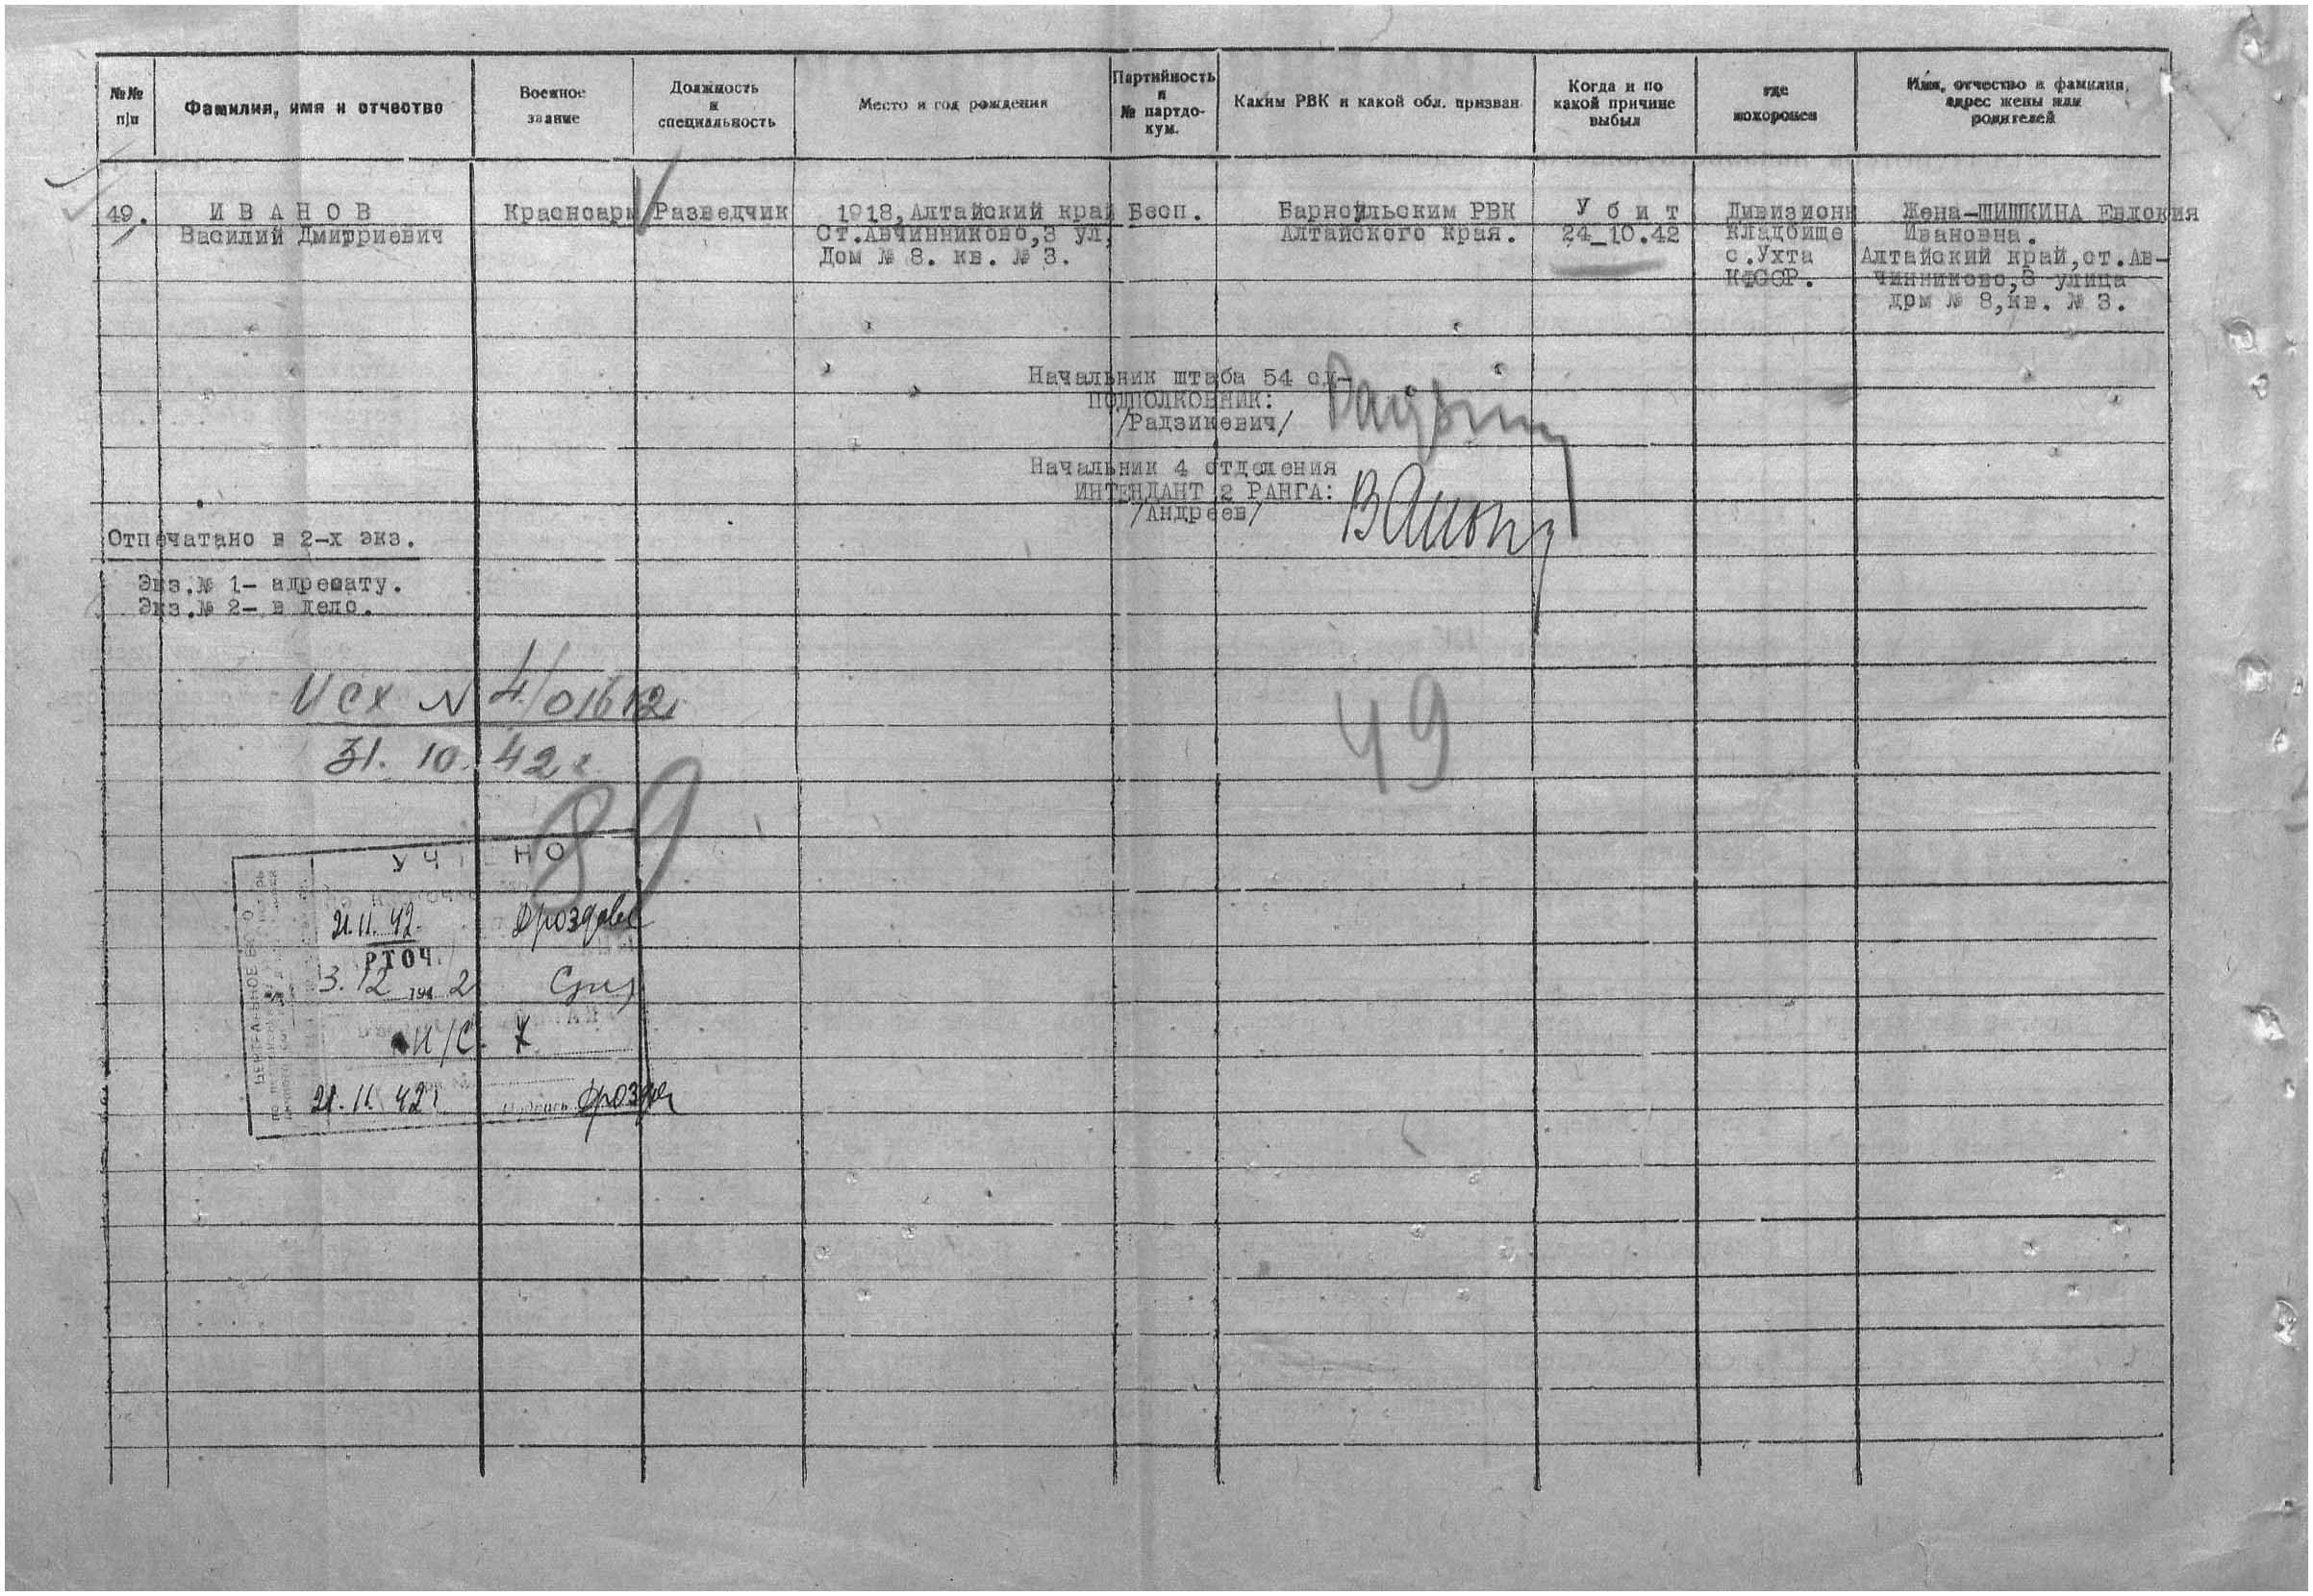 №№ п/п
Фамилия, имя и отчество
Военное звание
Должность и специальность
Место и год рождения
Партийность и № партдо-кум.
Каким РВК и какой обл. призван
Когда и по какой причине выбыл
где похоронен
Имя, отчество и фамилия, адрес жены или родителей
49.
И В А Н О В
Василий Дмитриевич
Красноарм
Разведчик
1918, Алтайский край
Ст.Авчинниково,3 ул,
Дом № 8. кв. № 3.
Бесп.
Барнаульским РВК
Алтайского края.
У б и т
24_10.42
Дивизионн
кладбище
с.Ухта
КФССР.
Жена-ШИШКИНА Евдокия
Ивановна.
Алтайский край,ст.Ав-
чинниково,3 улица
дрм № 8,кв. № 3.
Начальник штаба 54 сд-
ПОДПОЛКОВНИК:
/Радзикевич/
Начальник 4 отделения
ИНТЕНДАНТ 2 РАНГА:
/Андреев/
Отпечатано в 2-х экз.
Экз.№ 1- адресату.
Экз.№ 2- в дело.
Исх N 4/01612
31. 10. 42г
49
89
21.11.42.
РТОЧ.
3.12 1942
И/С. X
21.11.42г